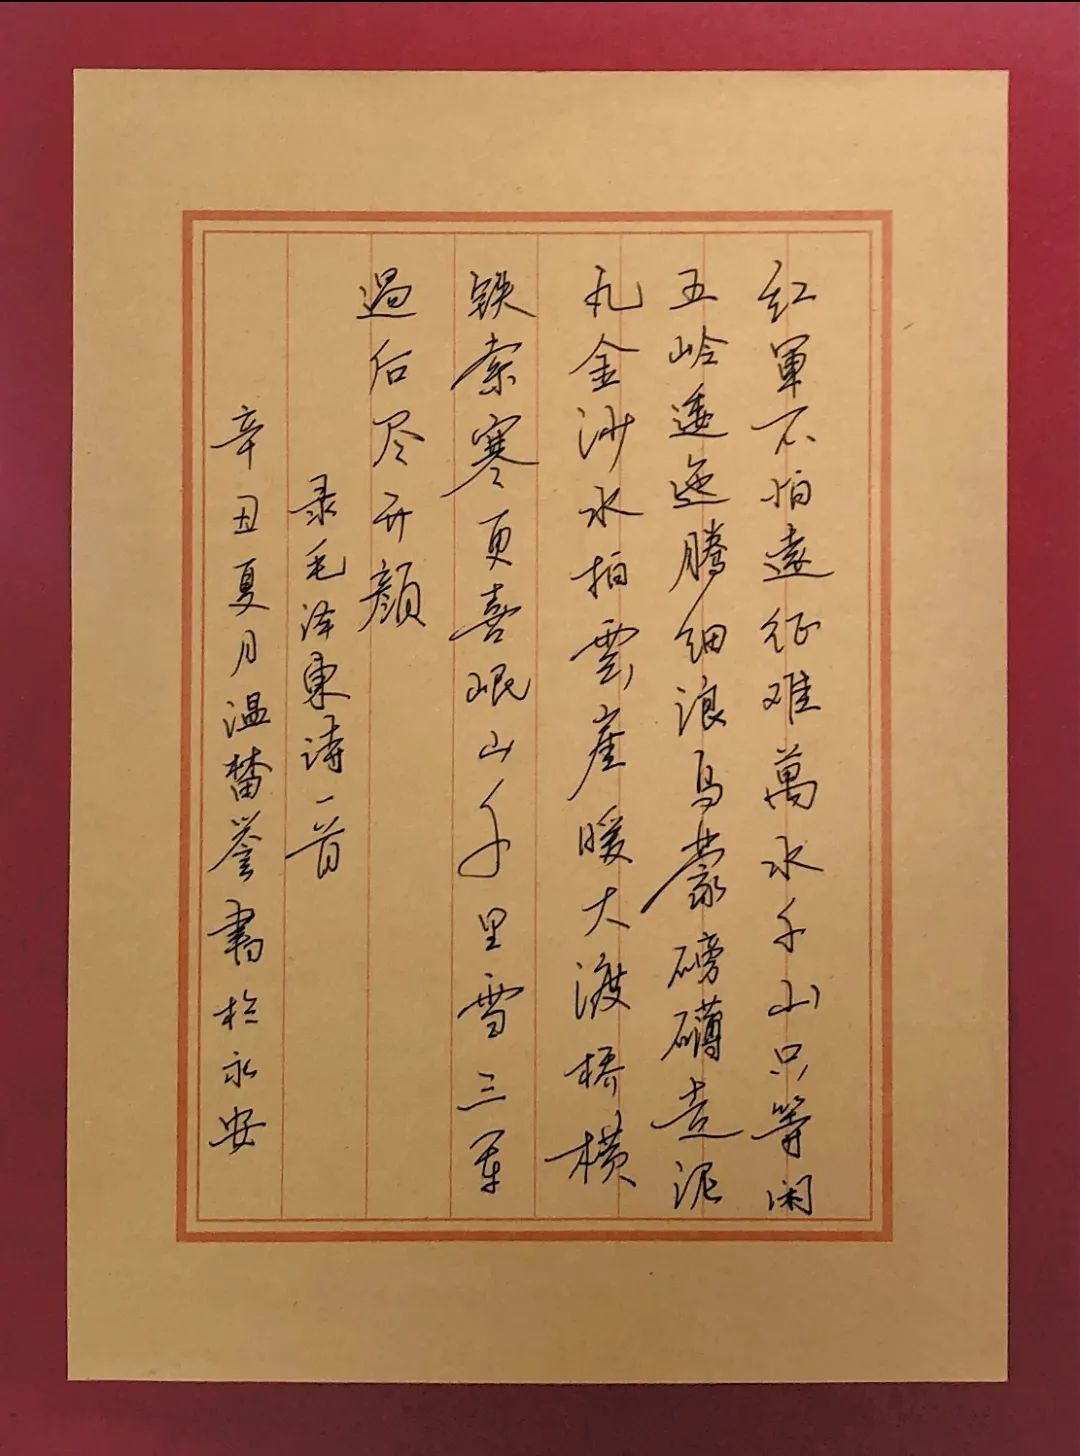 红軍不怕遠征难萬水千山只等闲
五岭逶迤腾细浪乌蒙磅礴走泥
丸金沙水拍雲崖暖大渡桥横
铁索寒更喜岷山千里雪三军
過后尽开颜
录毛泽東诗一首
辛丑夏月温誉書於永安